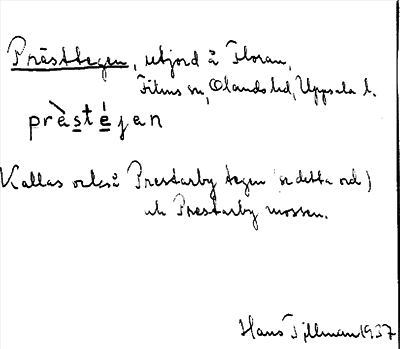 Prästtegen, utjord å Floran,
Films sn, Olands hd, Uppsala l.
prästejan
Kallas också Prestarby tegen (se detta ord)
och Prestarby mossen.
Hans Tillman 1937